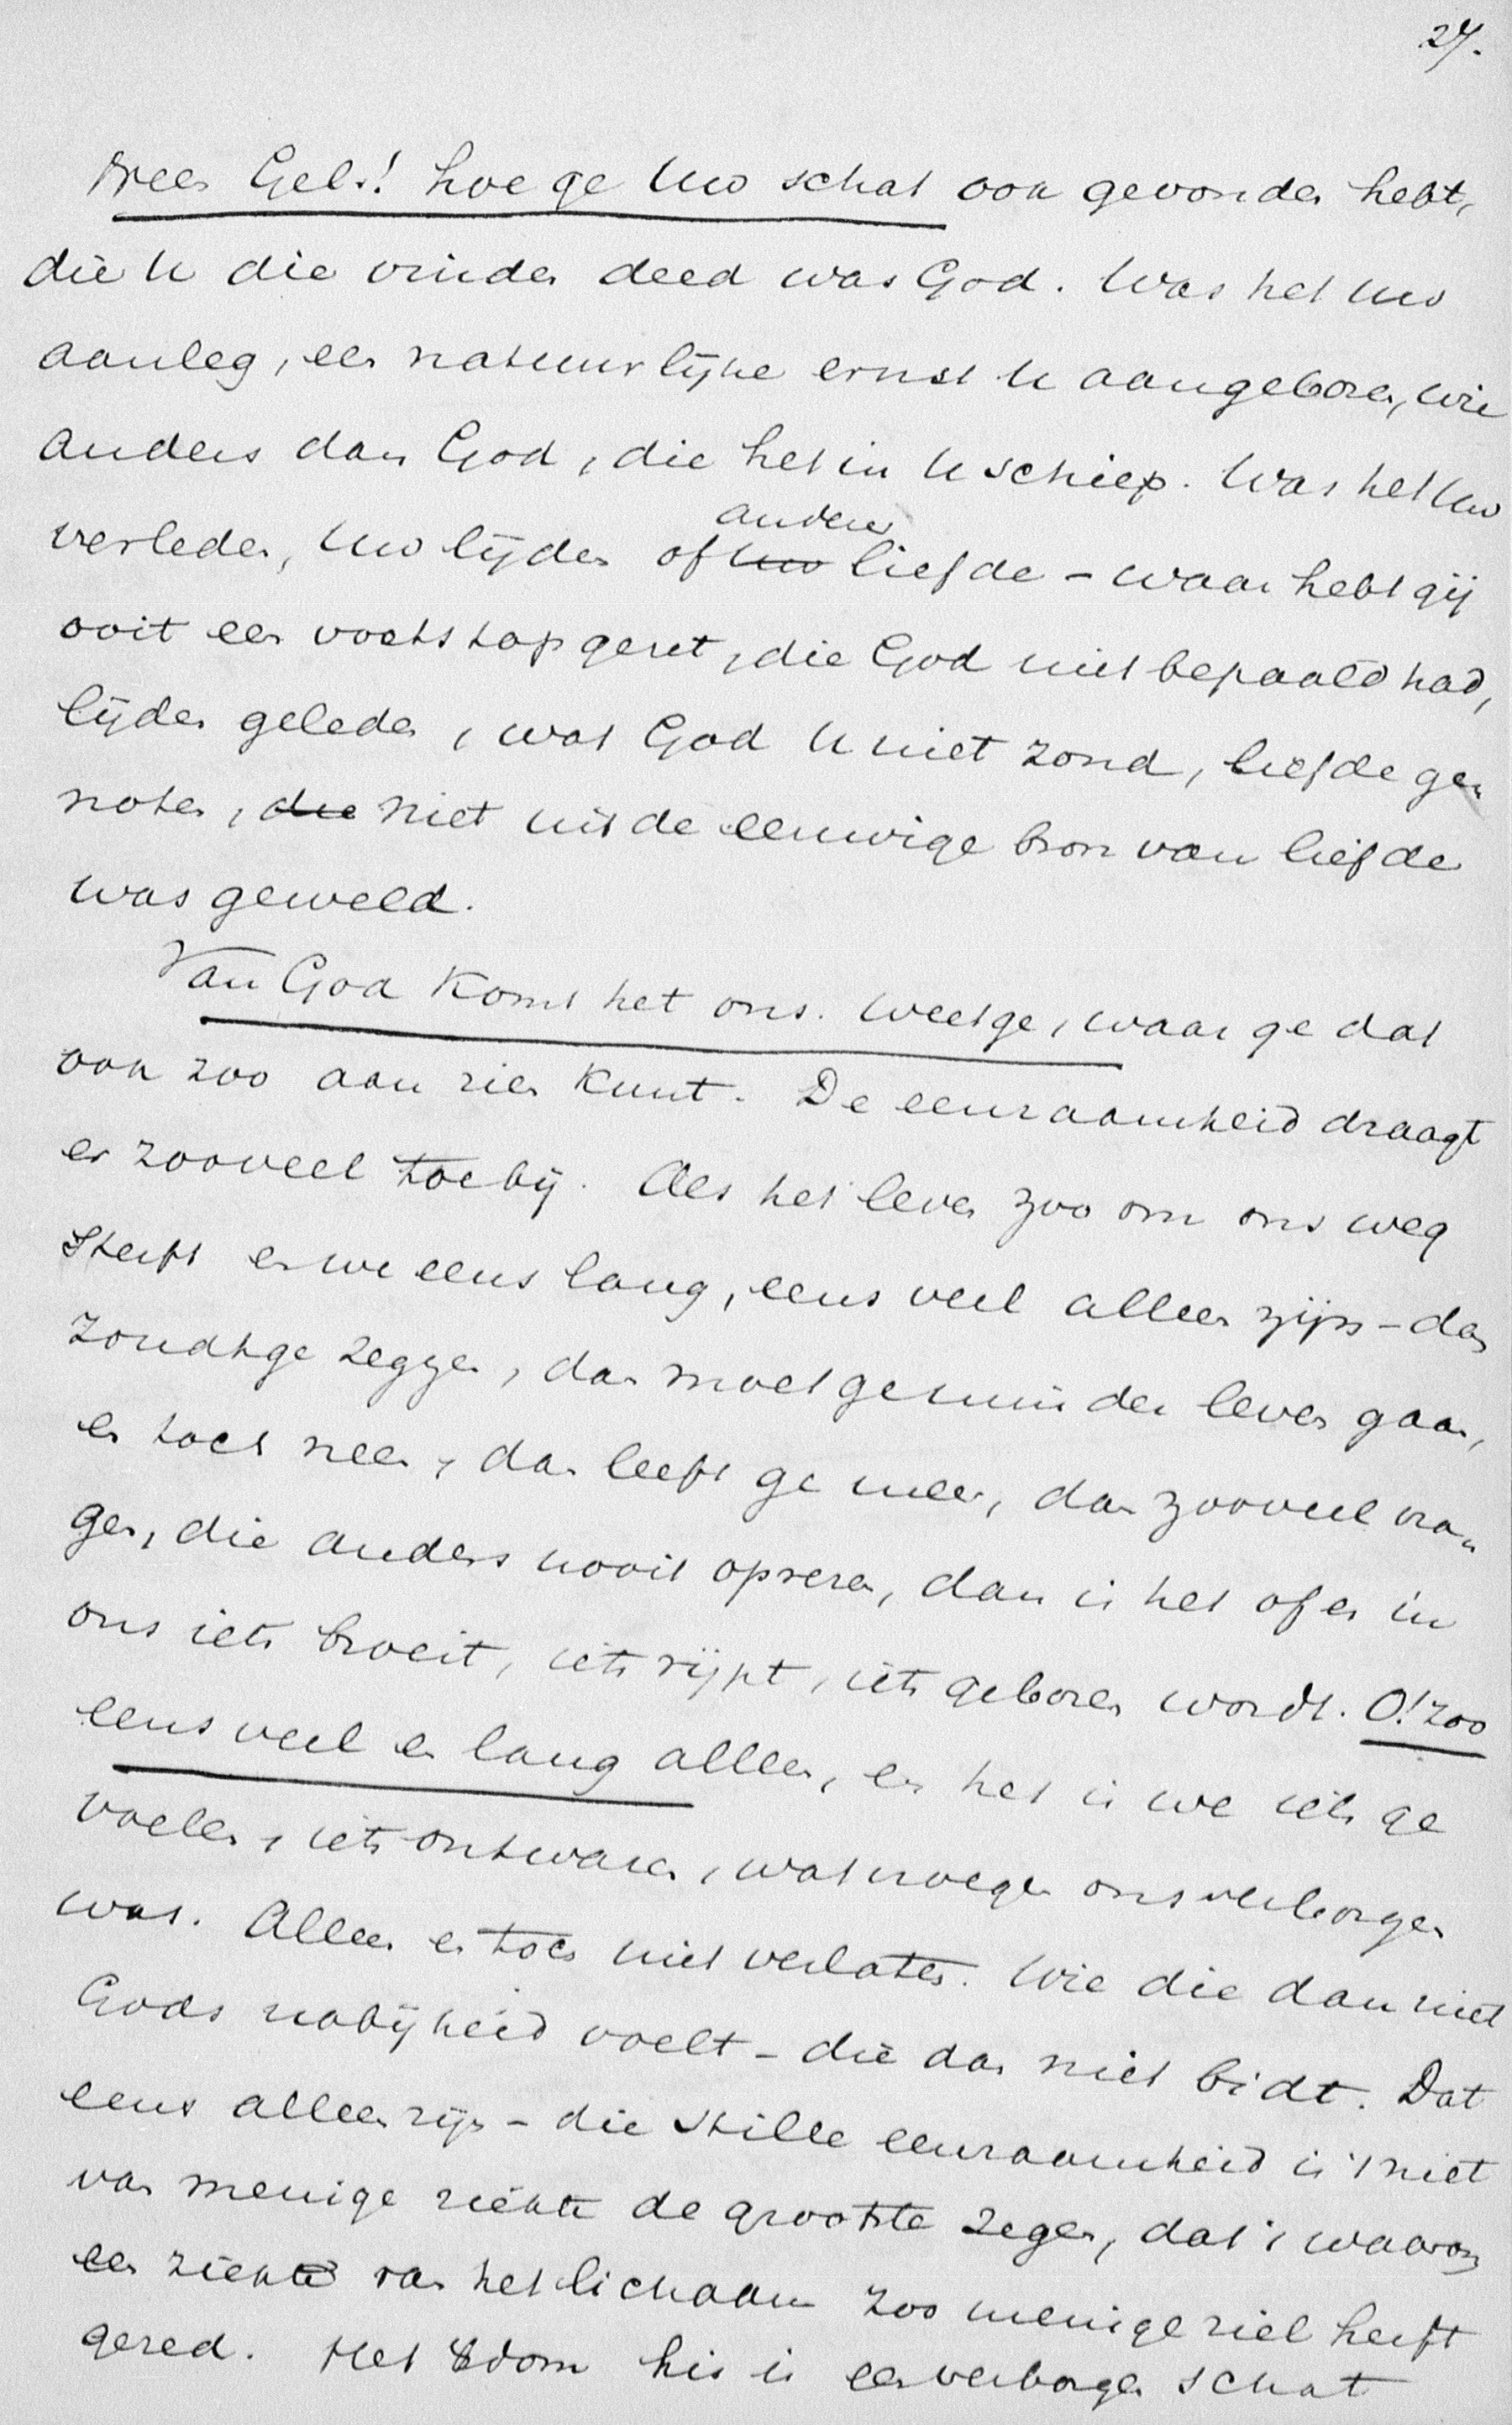 27.
Neen Gel.! hoe ge Uw schat ook gevonden hebt,
die U die vinden deed was God. Was het Uw
aanleg, een natuurlijke ernst U aangeboren, wie
anders dan God, die het in U schiep. Was het Uw
anderer
verleden, Uw lijden of Uw liefde - waar hebt gij
ooit een voetstap gezet, die God niet bepaald had,
lijden geleden, wat God U niet zond, liefde ge„
noten, die niet uit de eeuwige bron van liefde
was geweld.
Van God komt het ons. Weet ge, waar ge dat
ook zoo aan zien kunt. De eenzaamheid draagt
er zooveel toe bij. Als het leven zoo om ons weg
sterft en we eens lang, eens veel alleen zijn - dan
zoudt ge zeggen, dan moet ge minder leven gaan,
en toch neen, dan leeft ge meer, dan zooveel vra„
gen, die anders nooit oprezen, dan is het of er in
ons iets broeit, iets rijpt, iets geboren wordt. O! zoo
eens veel en lang alleen, en het is we iets ge
voelen, iets ontwaren, wat vroeger ons verborgen
was. Alleen en toch niet verlaten. Wie die dan niet
Gods nabijheid voelt - die dan niet bidt. Dat
eens alleen zijn - die stille eenzaamheid is 't niet
van menige ziekte de grootste zegen, dat is waarom
een ziekte van het lichaam zoo menige ziel heeft
gered. Het is een verborgen schat